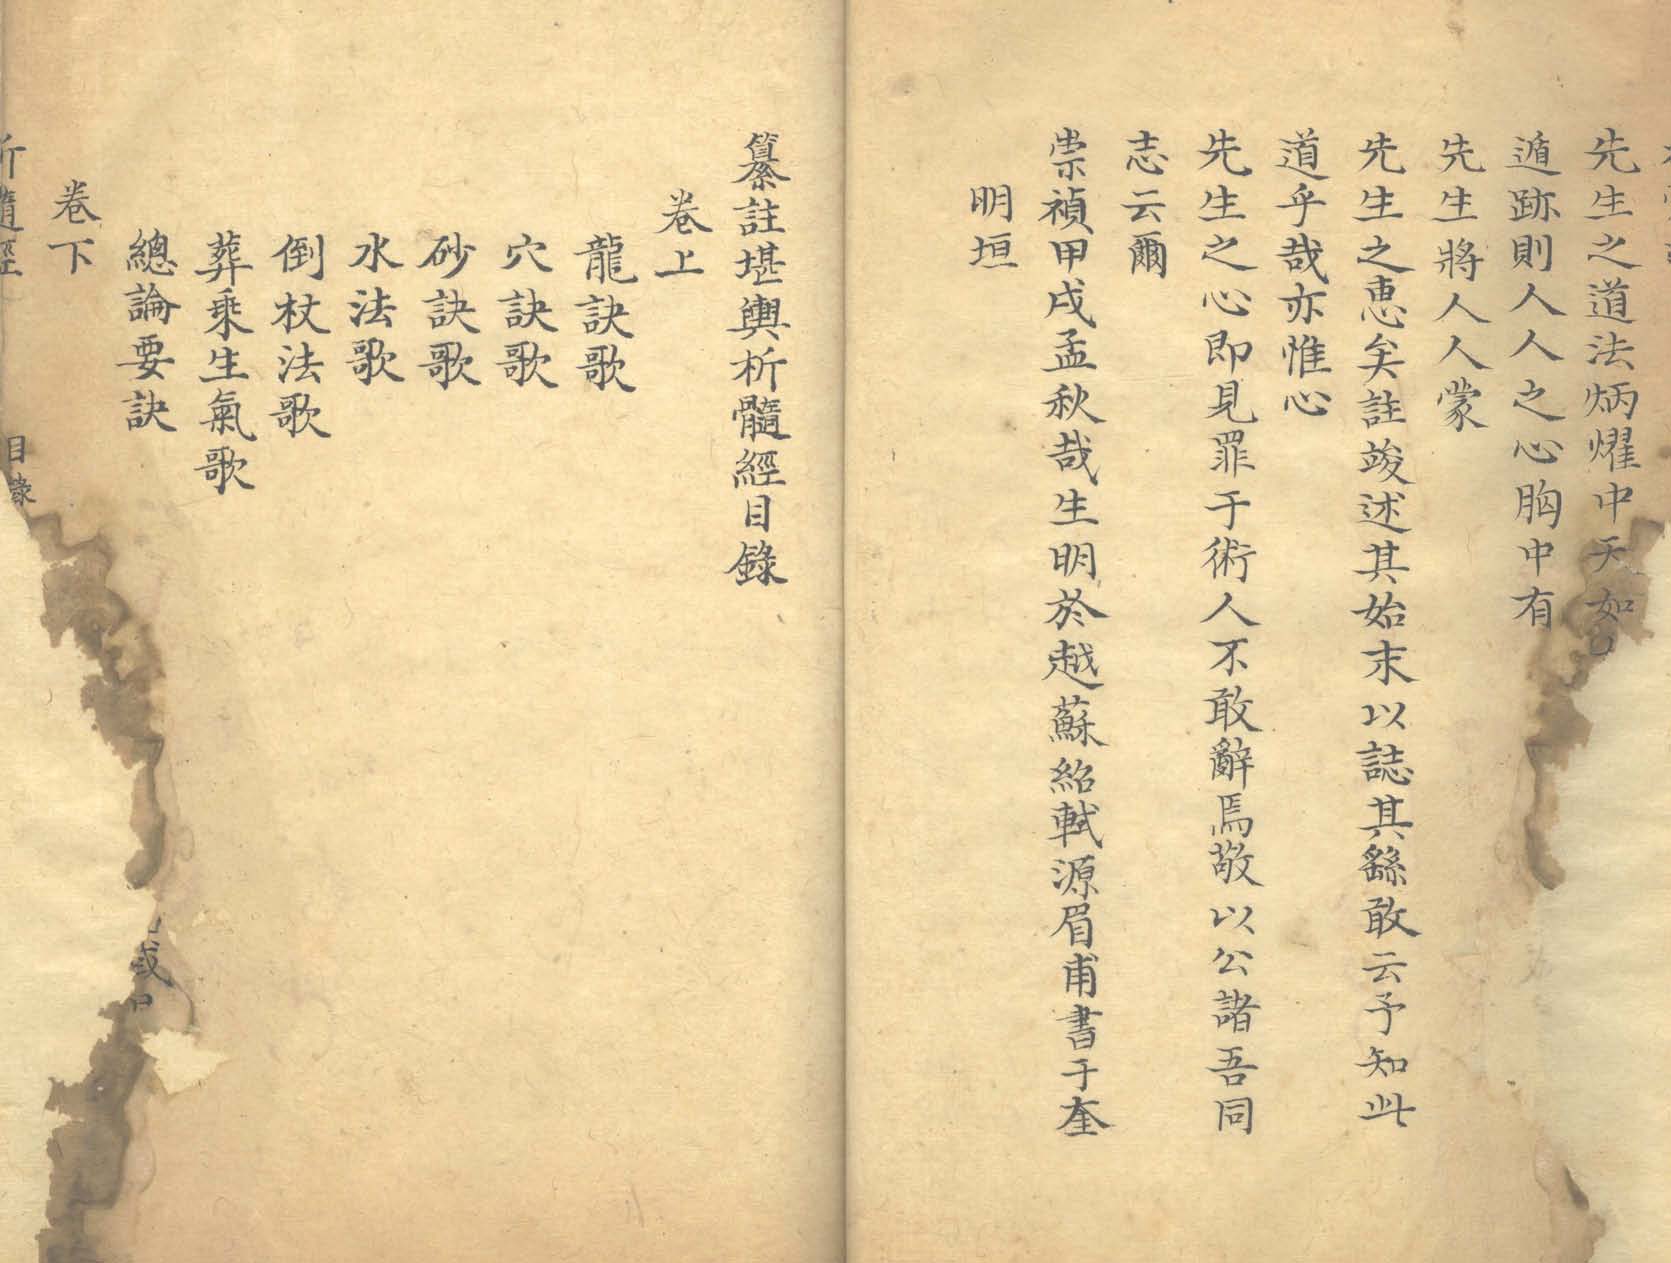 先生之道法炳燿中天如
遁跡則人人之心胸中有
先生將人人蒙
先生之惠矣註竣述其始末以誌其繇敢云予知此
道乎哉亦惟心
先生之心即見罪于術人不敢辭焉敬以公諸吾同
志云爾
崇禎甲戌孟秋哉生明於越蘇紹軾源眉甫書于奎
明垣
纂註堪輿析髓經目錄
卷上
龍訣歌
穴訣歌
砂訣歌
水法歌
倒杖法歌
葬乘生氣歌
總論要訣
卷下
析髓經
目錄